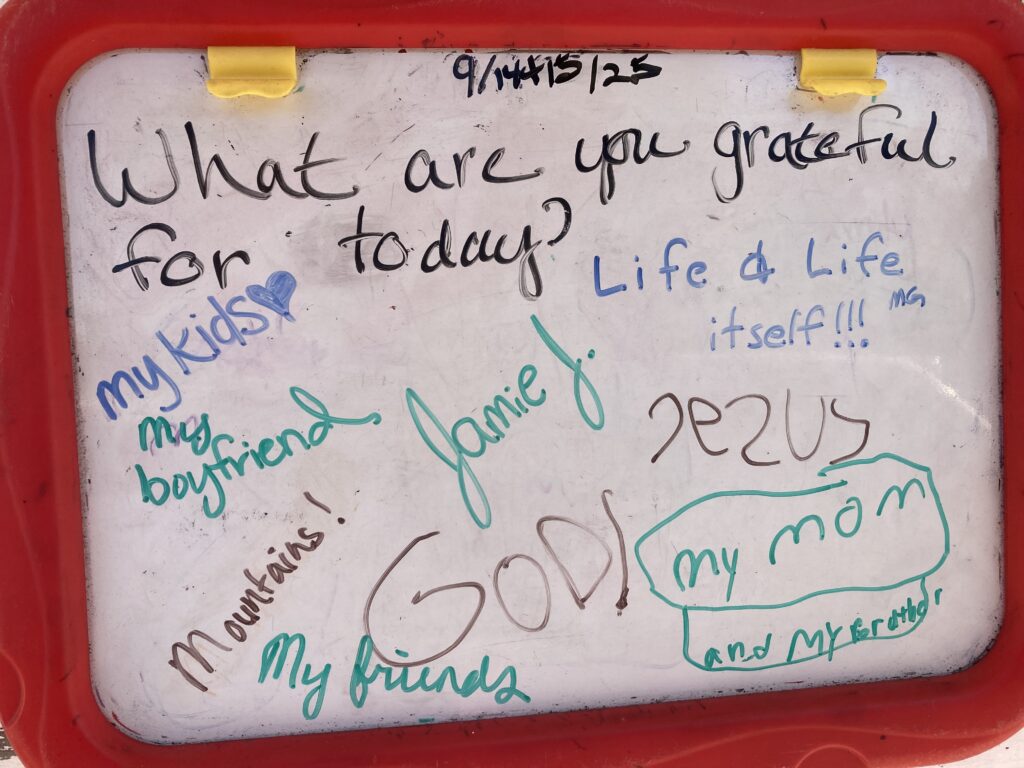 9/14+15/25
What are you grateful
for today?
Life & Life
itself!!! MG
my kids
my
boyfriend
Jamie J.
JEZUS
Mountains!
GOD!
my mom
and my
My friends